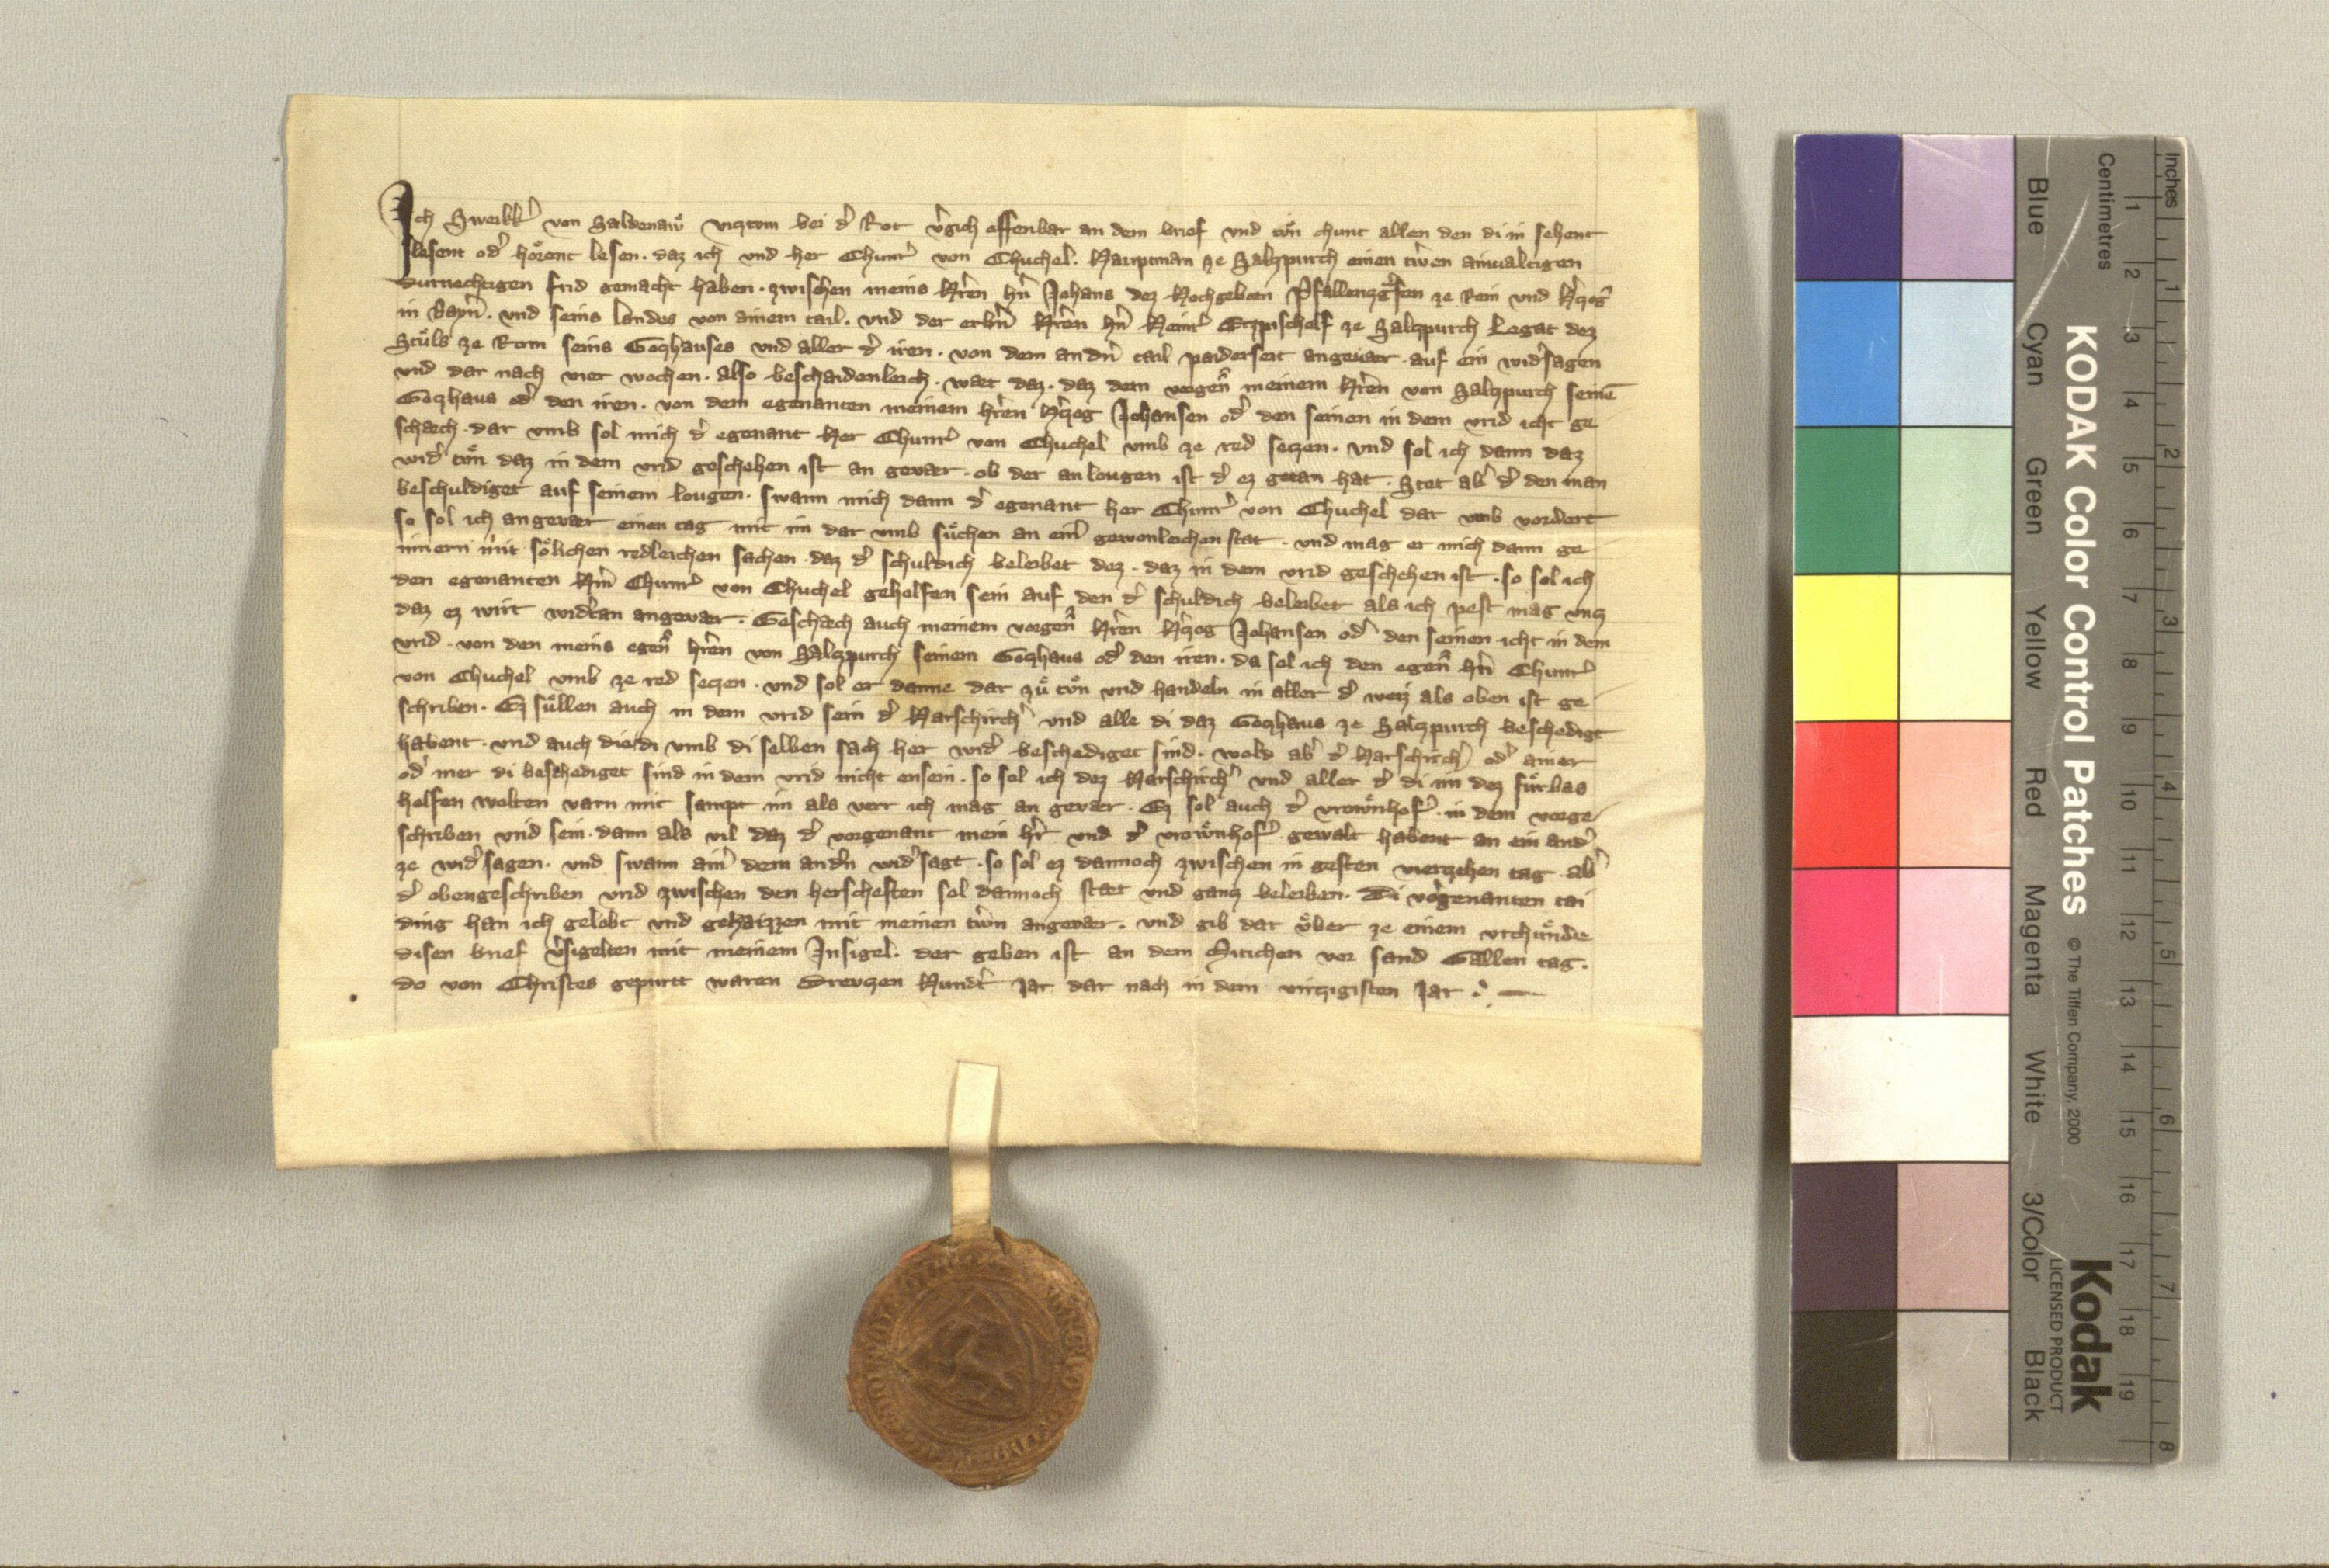 Ich Sweikk̉ von Saldenaẘ viztvm bei d̉ Rot v̉gich offenbar an dem brief vnd tv̊n chunt allen den di in sehent
lesent od̉ hoͤrent lesen. daz ich vnd her Chunr̉ von Chuchel. Hauptman ze Saltzpurch einen tr̉wen ainualtigen
durnechtigen frid gemacht haben. zwischen meins Hr̉en hn̉ Johans dez Hochgeborn Pfallenczgr̉fen ze Rein vnd H̉czog̉
in Bayrn̉. vnd seins landes von ainem tail. vnd der erbn̉ Hr̉en hn̉ Heinr̉ Erzpischolf ze Saltzpurch Legat dez
Stuͤls ze Rom seins Gotzhauses vnd aller d̉ iren. von dem andn̉ tail paiderseit angeuaer. auf ein wid̉sagen
vnd dar nach vier wochen. also beschaidenleich. waer daz. daz dem vorgen̄ meinem Hr̉en von Saltzpurch seinē
Gotzhaus od̉ den iren. von dem egenanten meinem hr̉en H̉czog Johansen od̉ den seinen in dem vrid icht ge
schaech. dar vmb sol mich d̉ egenant her Chunr̉ von Chuchel vmb ze red seczen. vnd sol ich dann daz
wid̉ tuͤn daz in dem vrid geschehen ist an gevaer. ob der an lougen ist d̉ ez getan hat. Stet ab̉ d̉ den man
beschuldiget auf seinem lougen. swann mich dann d̉ egenant her Chunr̉ von Chuchel dar vmb vordert
so sol ich angevaer einen tag mit im dar vmb suͤchen an ein̉ gewonleichen stat. vnd mag er mich dann ge
innern mit soͤlichen redleichen sachen. daz d̉ schuldich beleibet dez. daz in dem vrid geschehen ist. so sol ich
den egenanten Hn̉ Chunr̉ von Chuchel gehelfen sein auf den d̉ schuldich beleibet als ich pest mag vntz
daz ez wirt wid̉tan angevaer. Geschaech auch meinem vorgen̄ Hr̉en H̉czog Johansen od̉ den seinen icht in dem
vrid. von den meins egen̄ hr̉en von Saltzpurch seinem Gotzhaus od̉ den iren. da sol ich den egen̄ Hn̉ Chunr̉
von Chuchel vmb ze red seczen. vnd sol er danne dar zuͤ tuͤn vnd handeln in aller d̉ weiz als oben ist ge
schriben. Ez suͤllen auch in dem vrid sein d̉ Harschirch̉ vnd alle di daz Gotzhaus ze Saltzpurch beschedigt
habent. vnd auch die di vmb di selben sach her wid̉ beschediget sind. wold ab̉ d̉ Harschirch̉ od̉ ainer
od̉ mer di beschediget sind in dem vrid nicht ensein. so sol ich dez Harschirch̉ vnd aller d̉ di im dez fuͤrbas
helfen wolten varn mit sampt im als verr ich mag an gevaer. Ez sol auch d̉ vroẘnhof̉ in dem vorge
schriben vrid sein. dann als vil daz d̉ vorgenant mein hr̉ vnd d̉ vroẘnhof̉ gewalt habent an ein and̉
ze wid̉sagen. vnd swann ain̉ dem andn̉ wid̉sagt. so sol ez dannoch zwischen in gesten vierzehen tag ab̉
d̉ obengeschriben vrid zwischen den herscheften sol dannoch staet vnd gantz beleiben. Di vorgenanten tai
ding han ich gelobt vnd gehaizzen mit meinen tr̉wn angevaer. vnd gib dar uͤber ze einem vrchuͤnde
disen brief v̉sigelten mit meinem Insigel. der geben ist an dem Mitichen vor sand Gallen tag.
do von Christes gepurtt waren Drevzen Hund̉t Jar dar nach in dem virtzigisten Jar
KODAK Color Control Patches
© The Tiffen Company, 2000
Kodak
LICENSED PRODUCT
Blue Cyan Green Yellow Red Magenta White 3/Color Black
Inches 1 2 3 4 5 6 7 8
Centimetres 1 2 3 4 5 6 7 8 9 10 11 12 13 14 15 16 17 18 19